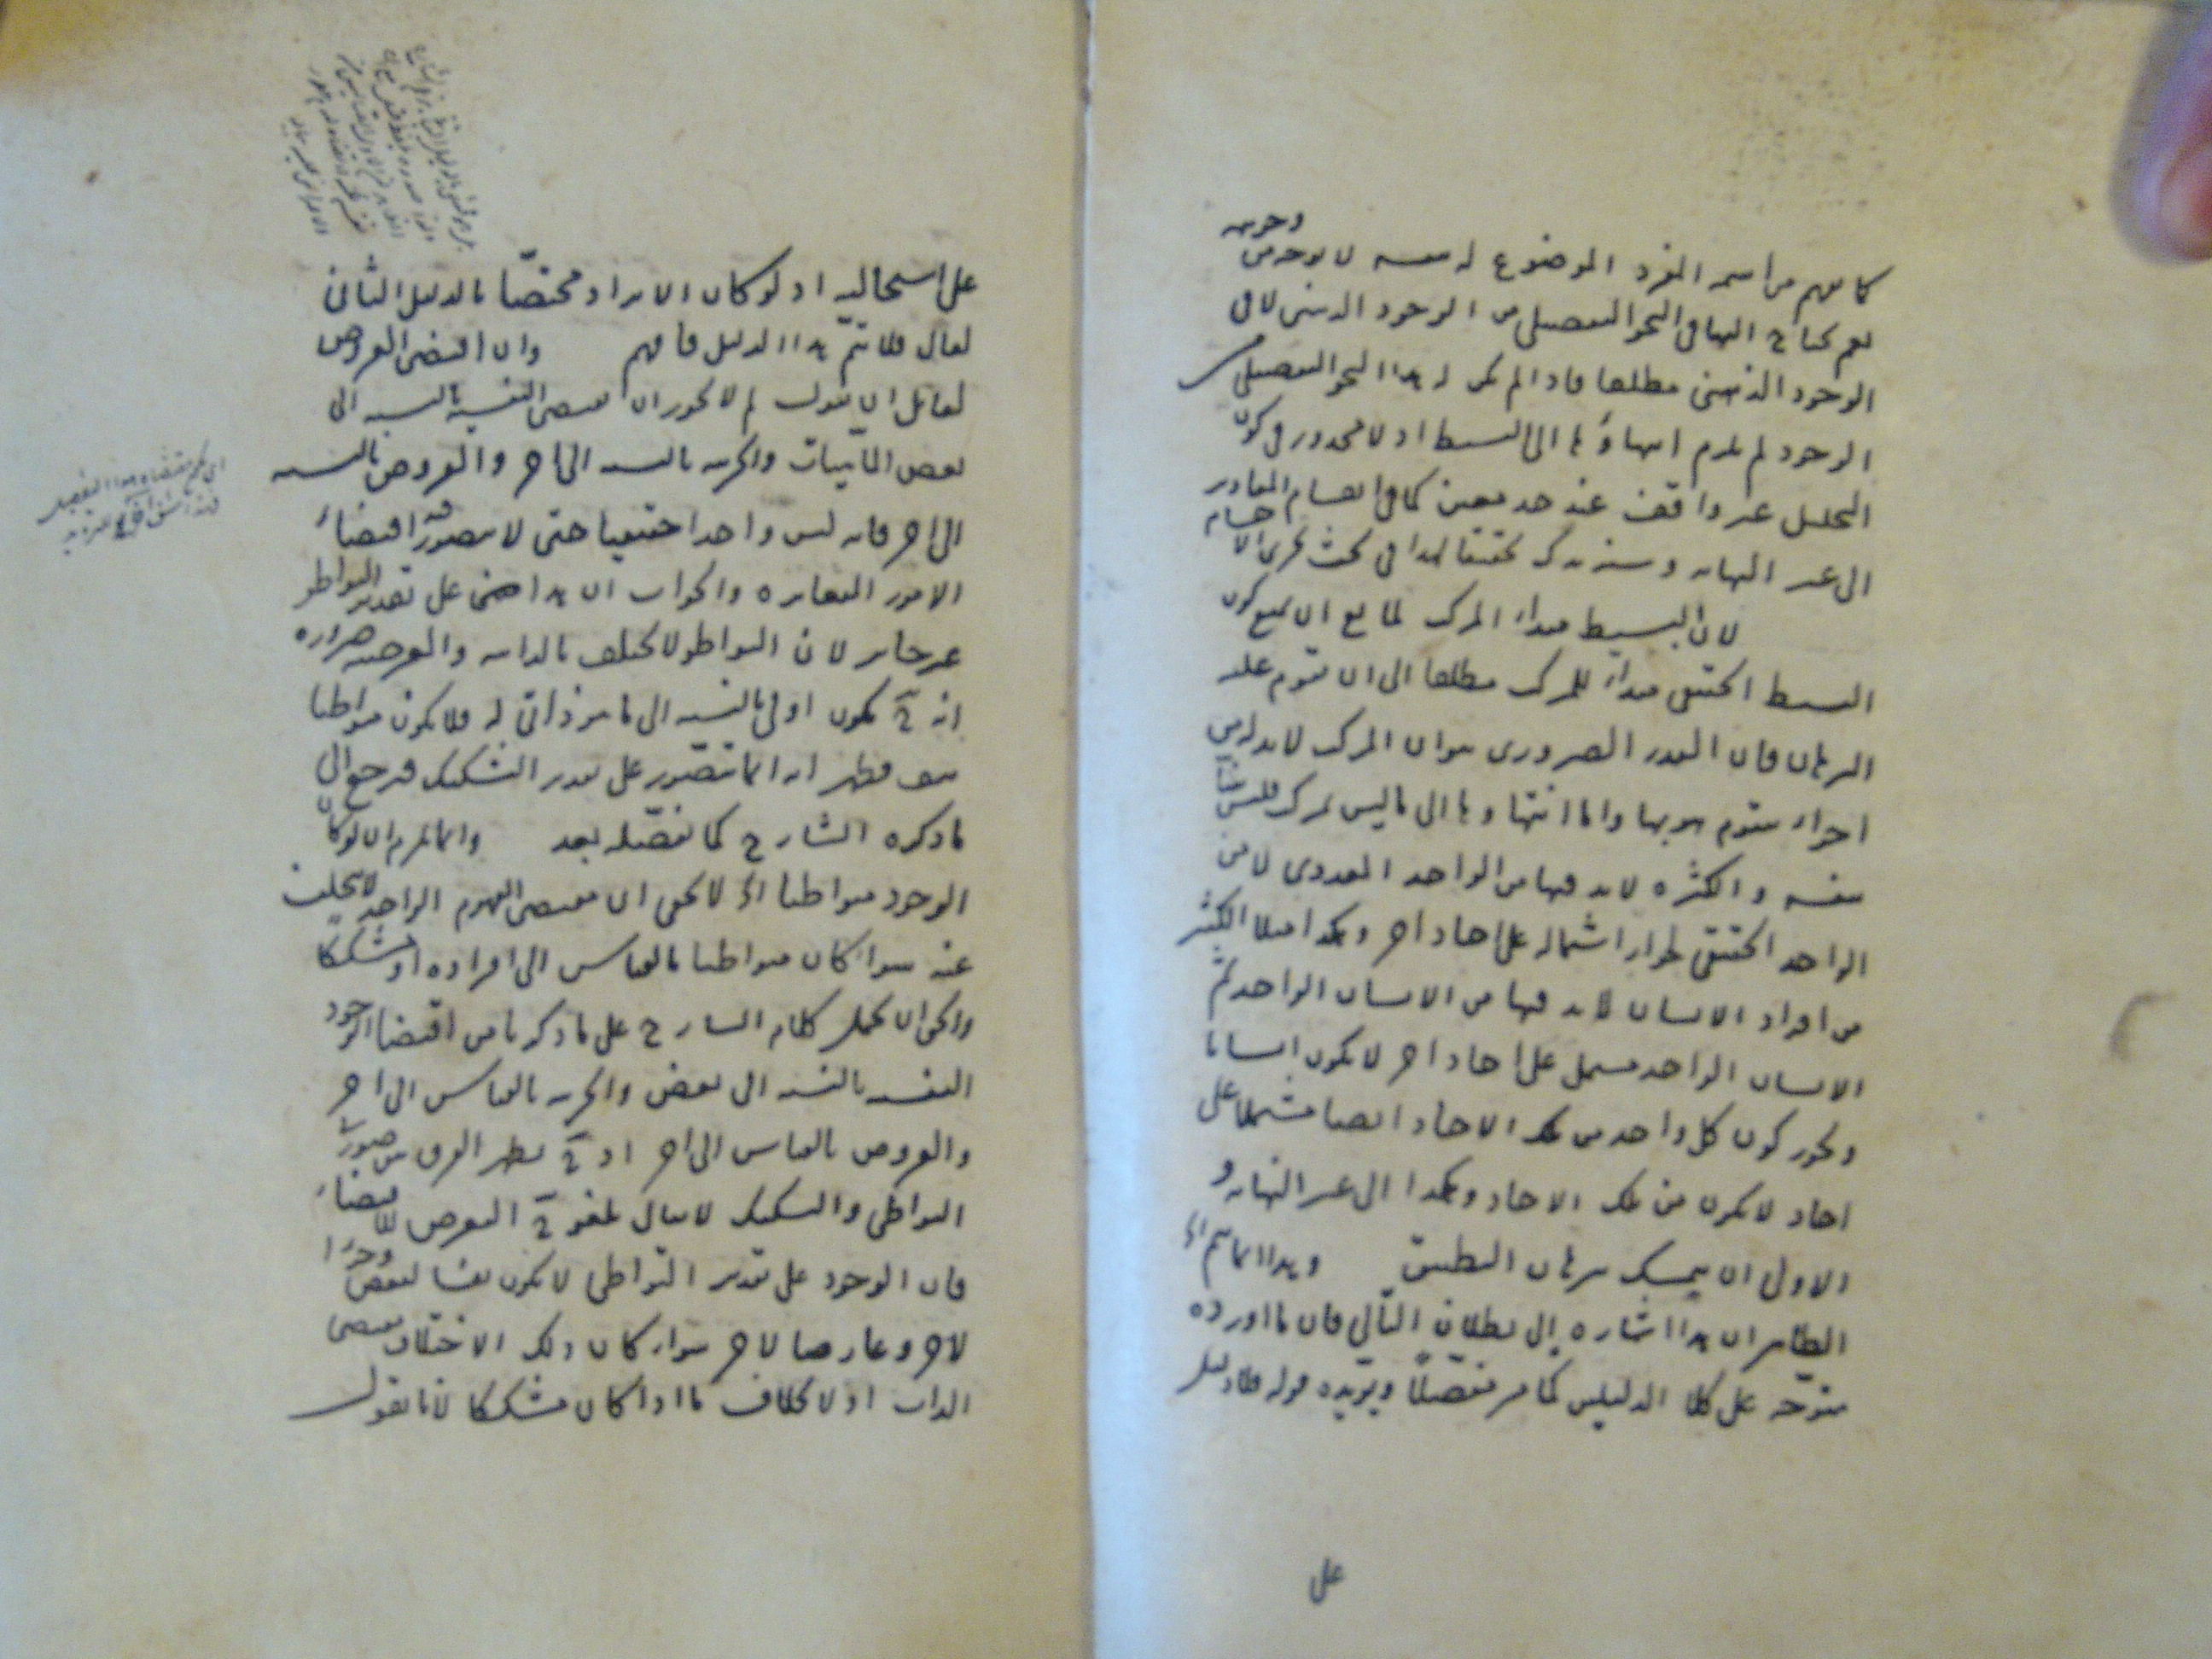 كما يفهم من اسم المفرد الموضوع له نفسه لا يوجد من وجوبه
نعم يحتاج اليها في النحو التفصيلي من الوجود الذهني لا في
الوجود الذهني مطلقا فاذا لم يكن له هذا النحو التفصيلي من
الوجود لم يلزم انتهاؤها الى البسيط اذ لا محذور في كون
التحليل غير واقف عند حد معين كما في انقسام المقادير
الى غير النهاية وسنذكر تحقيقا لهذا في بحث تجزي الاجسام
لان البسيط مبدأ المركب لمانع ان يمنع كون
البسيط الحقيقي مبدأ للمركب مطلقا الى ان يقوم عليه
البرهان فان القدر الضروري هو ان المركب لا بد له من
اجزاء يتقوم هو بها واما انتهاؤها الى ما ليس بمركب فليس بينا
بنفسه والكثرة لا بد فيها من الواحد العددي لا من
الواحد الحقيقي لجواز اشتماله على احاد اخر وهكذا مثلا الكثير
من افراد الانسان لا بد فيها من الانسان الواحد ثم
الانسان الواحد مشتمل على احاد اخر لا يكون انسانا
ويجوز كون كل واحد من تلك الاحاد ايضا مشتملا على
احاد لا يكون من تلك الاحاد وهكذا الى غير النهاية و
الاولى ان يتمسك ببرهان التطبيق وهذا انما يتم الخ
الظاهر ان هذا اشارة الى بطلان التالي فان ما اورده
متوجه على كلا الدليلين كما مر مفصلا ويؤيده قوله فلا دليل
على
على استحالته اذ لو كان الايراد مختصا بالدليل الثاني
لقال فلا تتم هذا الدليل فافهم وان اقتضى العروض
لقائل ان يقول لم لا يجوز ان يقتضي النفسية بالنسبة الى
بعض الماهيات والجزئية بالنسبة الى اخر والعروض بالنسبة
الى اخر فانه ليس واحدا حقيقيا حتى لا يتصور فيه اقتضاء
الامور المتغايرة والجواب ان هذا مبني على تقدير التواطؤ
غير جائز لان المتواطئ لا يختلف بالذاتية والعرضية ضرورة
انه ح يكون اولى بالنسبة الى ما هو ذاتي له فلا يكون متواطئا
هف فظهر انه انما يتصور على تقدير التشكيك فيرجع الى
ما ذكره الشارح كما نفصله بعد وانما يلزم ان لو كان
الوجود متواطئا الخ لا يخفى ان مقتضى المفهوم الواحد لا يتخلف
عنه سواء كان متواطئا بالقياس الى افراده او مشككا
والحق ان يحمل كلام الشارح على ما ذكرنا من اقتضاء الوجود
النفسية بالنسبة الى بعض والجزئية بالقياس الى اخر
والعروض بالقياس الى اخر اذ ح يظهر الفرق بين صورتي
التواطي والتشكيك لا يقال يلغو ح التعرض للاقتضاء
فان الوجود على تقدير التواطي لا يكون نفسا لبعض وجزءا
لاخر وعارضا لاخر سواء كان ذلك الاختلاف مقتضى
الذات او لا بخلاف ما اذا كان مشككا لانا نقول